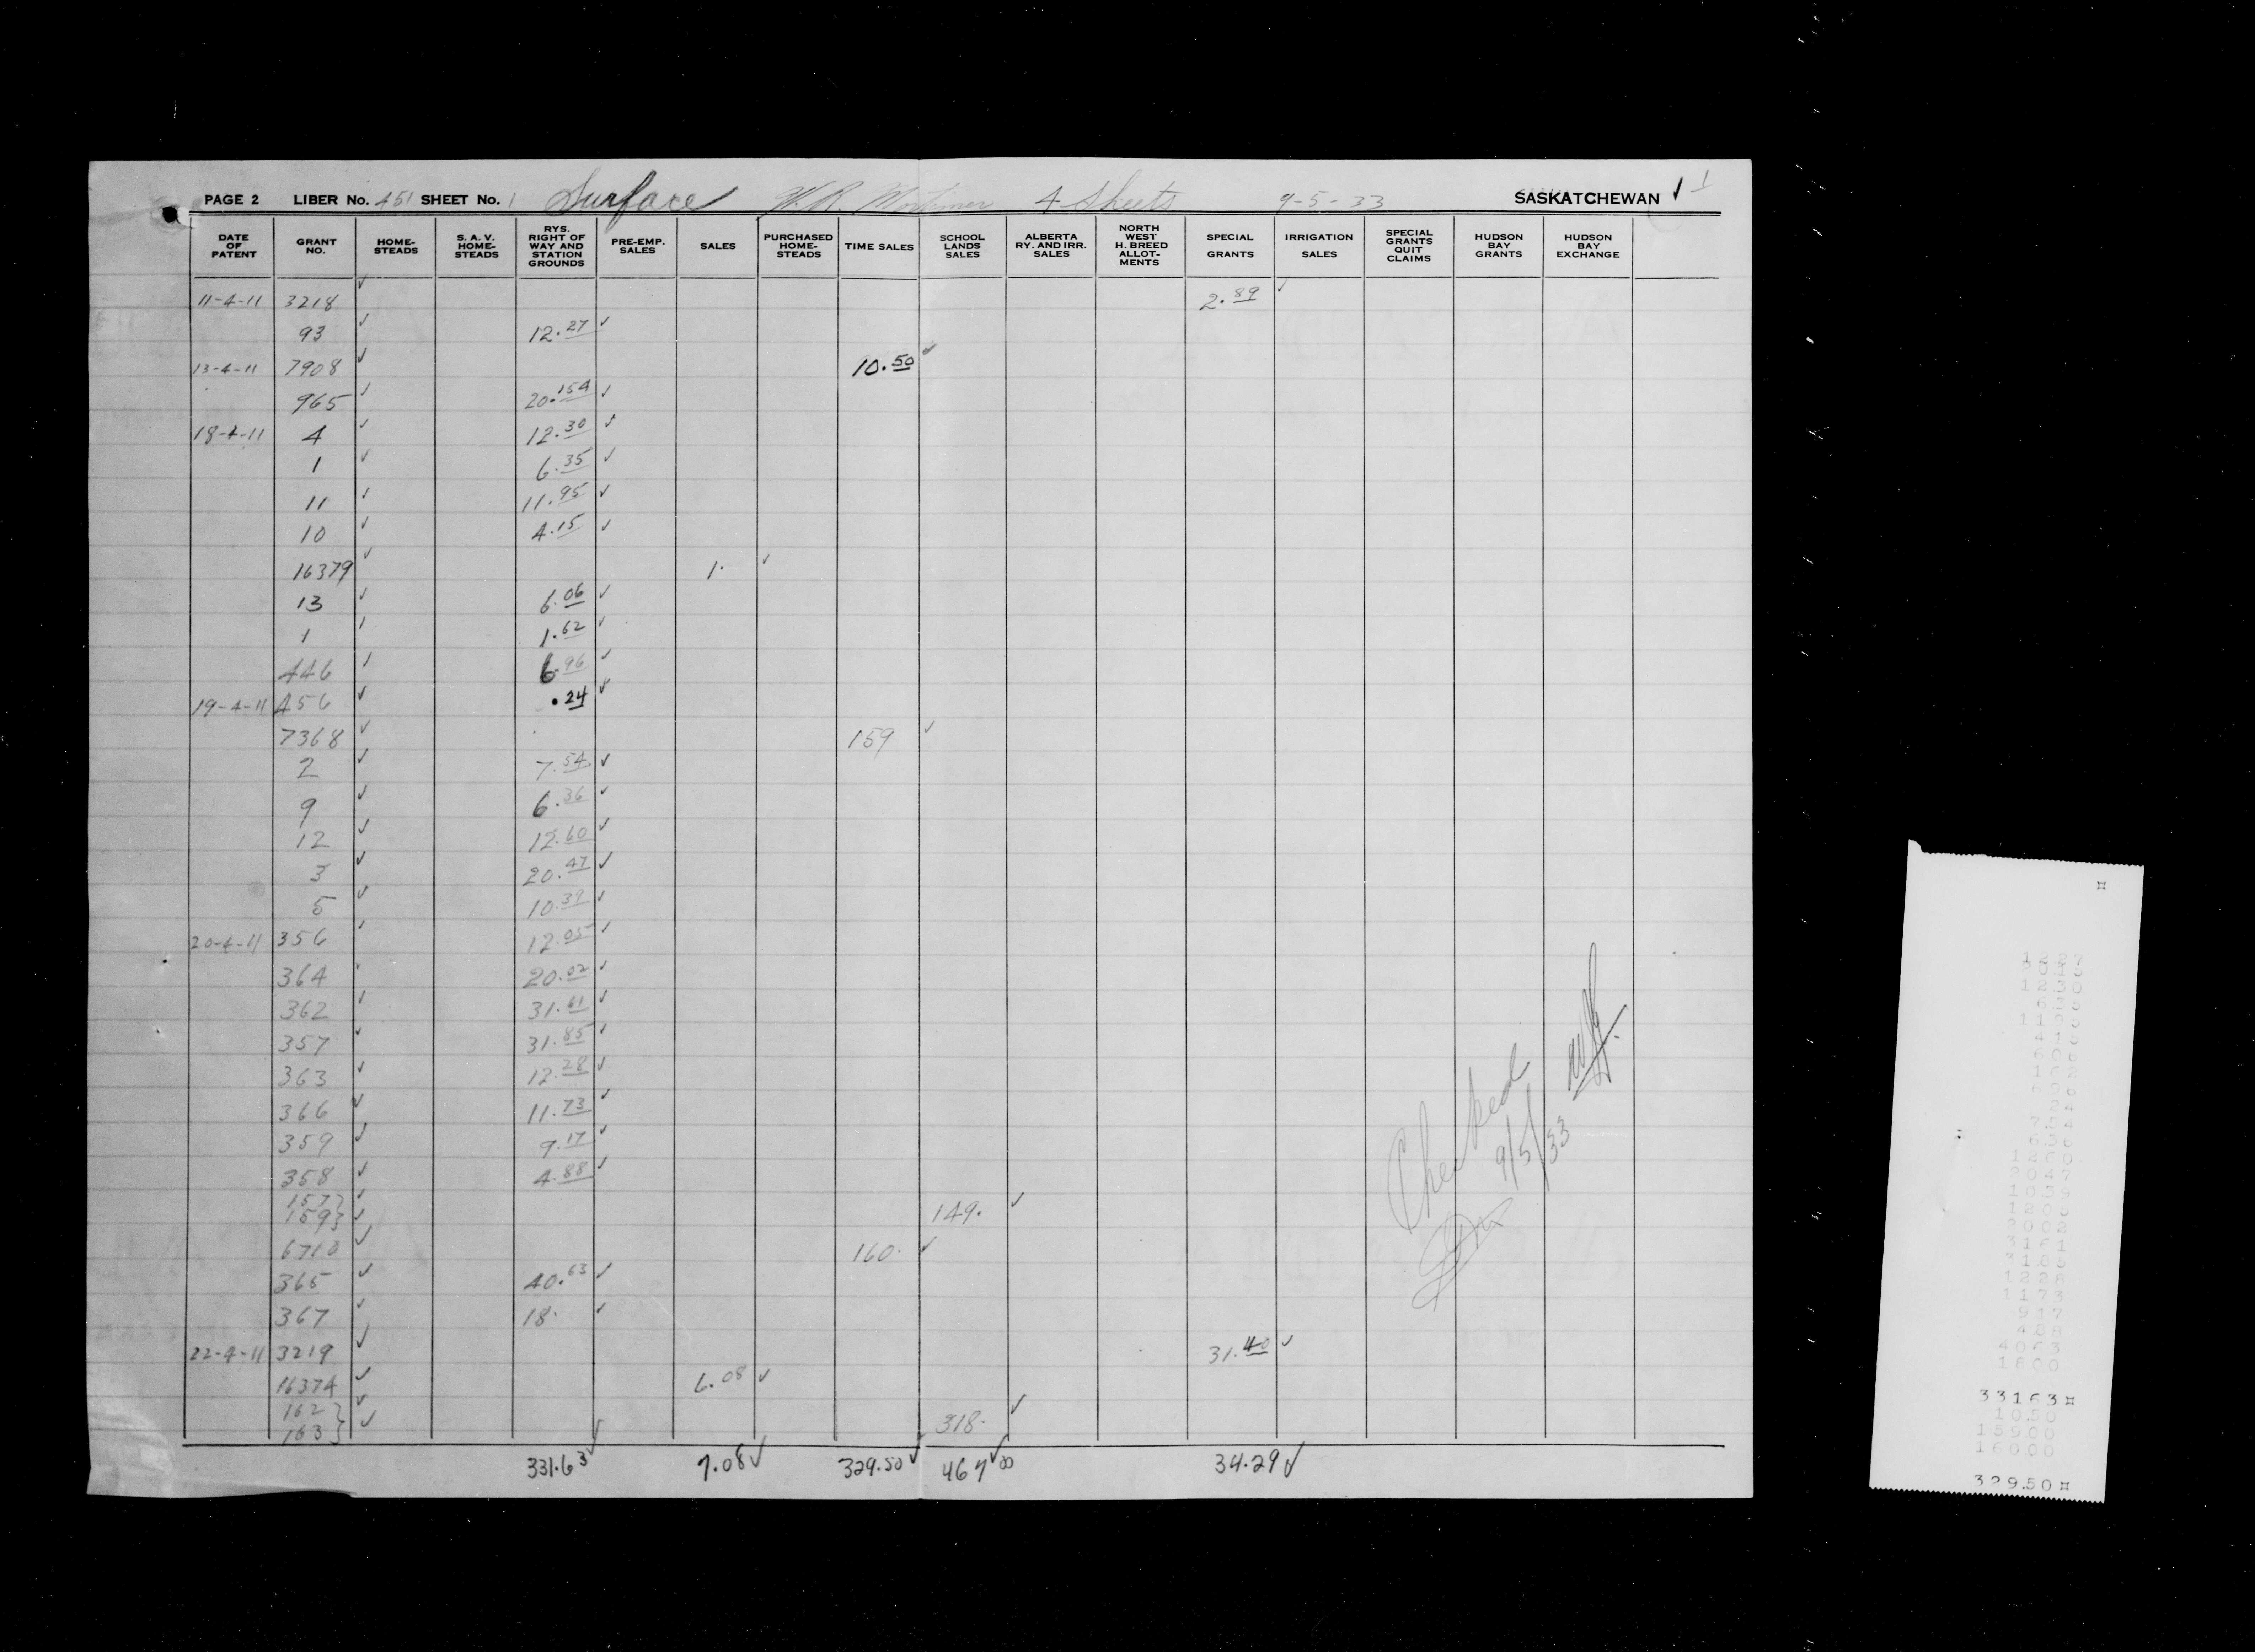 PAGE 2 LIBER No. 451 SHEET No. 1 Surface W. R. Mortimer 4 Sheets 9-5-33 SASKATCHEWAN ✓ 1
DATE OF PATENT GRANT NO. HOME-STEADS S. A. V. HOME-STEADS RYS. RIGHT OF WAY AND STATION GROUNDS PRE-EMP. SALES SALES PURCHASED HOME-STEADS TIME SALES SCHOOL LANDS SALES ALBERTA RY. AND IRR. SALES NORTH WEST H. BREED ALLOT-MENTS SPECIAL GRANTS IRRIGATION SALES SPECIAL GRANTS QUIT CLAIMS HUDSON BAY GRANTS HUDSON BAY EXCHANGE
11-4-11 3218 ✓ 2.89 ✓
93 ✓ 12.27 ✓
13-4-11 7908 ✓ 10.50 ✓
965 ✓ 20.154 ✓
18-4-11 4 ✓ 12.30 ✓
1 ✓ 6.35 ✓
11 ✓ 11.95 ✓
10 ✓ 4.15 ✓
16379 ✓ 1. ✓
13 ✓ 6.06 ✓
1 ✓ 1.62 ✓
446 ✓ 6.96 ✓
19-4-11 456 ✓ .24 ✓
7368 ✓ 159 ✓
2 ✓ 7.54 ✓
9 ✓ 6.36 ✓
12 ✓ 12.60 ✓
3 ✓ 20.47 ✓
5 ✓ 10.39 ✓
20-4-11 356 ✓ 12.05 ✓
364 ✓ 20.02 ✓
362 ✓ 31.61 ✓
357 ✓ 31.85 ✓
363 ✓ 12.28 ✓
366 ✓ 11.73 ✓
359 ✓ 9.17 ✓
358 ✓ 4.88 ✓
157} ✓
159} ✓ 149. ✓
6710 ✓ 160. ✓
365 ✓ 40.63 ✓
367 ✓ 18. ✓
22-4-11 3219 ✓ 31.40 ✓
16374 ✓ 6.08 ✓
162} ✓
163} ✓ 318. ✓
331.63 ✓ 7.08 ✓ 329.50 ✓ 467.00 ✓ 34.29 ✓
Checked
9/5/33
1228
1173
917
488
4063
1800
33163¤
10.50
159.00
160.00
329.50¤